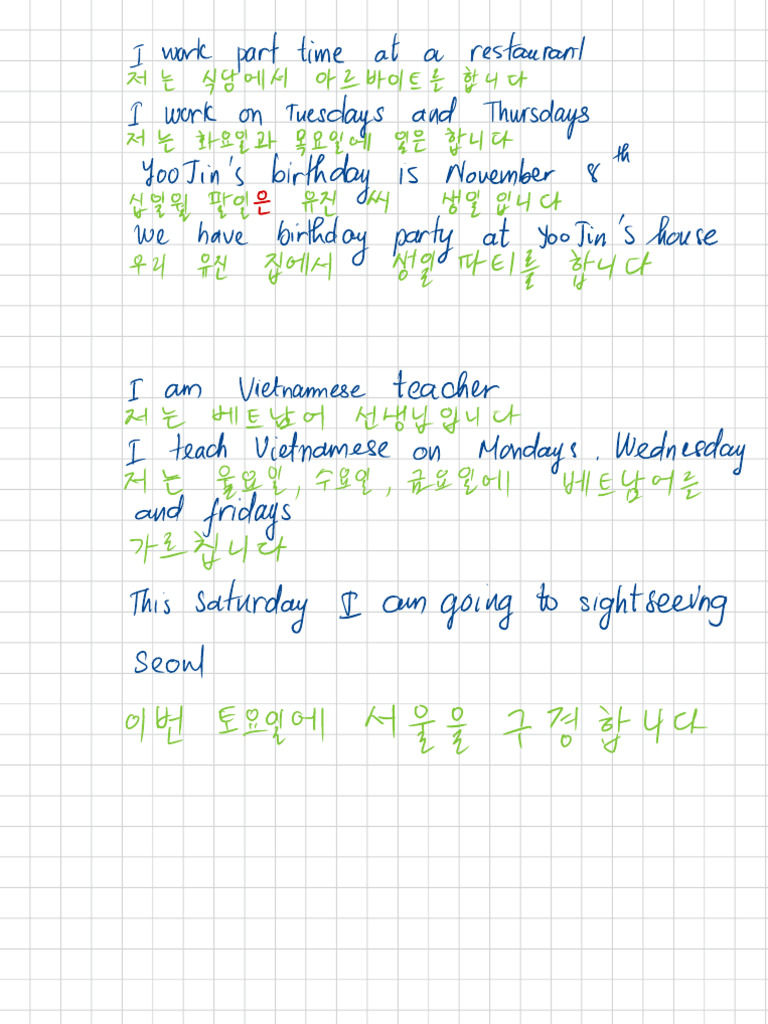 I work part time at a restaurant
저는 식당에서 아르바이트를 합니다
I work on Tuesdays and Thursdays
저는 화요일과 목요일에 일은 합니다
YooJin's birthday is November 8th
십일월 팔일은 유진 씨 생일입니다
We have birthday party at YooJin's house
우리 유진 집에서 생일 파티를 합니다
I am Vietnamese teacher
저는 베트남어 선생님입니다
I teach Vietnamese on Mondays, Wednesday
저는 월요일, 수요일, 금요일에 베트남어를
and fridays
가르칩니다
This Saturday I am going to sightseeing
Seoul
이번 토요일에 서울을 구경합니다